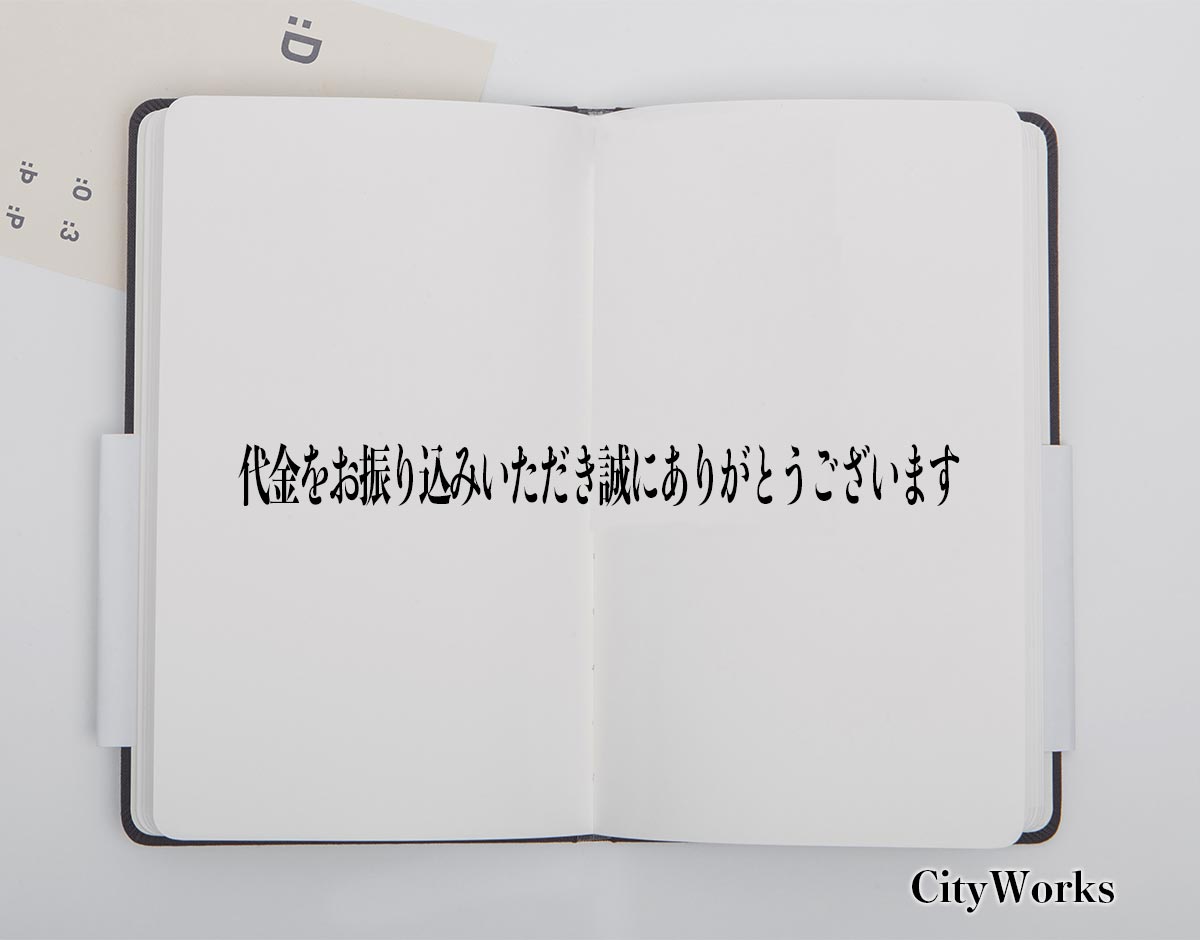 :D
:P :O
:P :3
代金をお振り込みいただき誠にありがとうございます
CityWorks